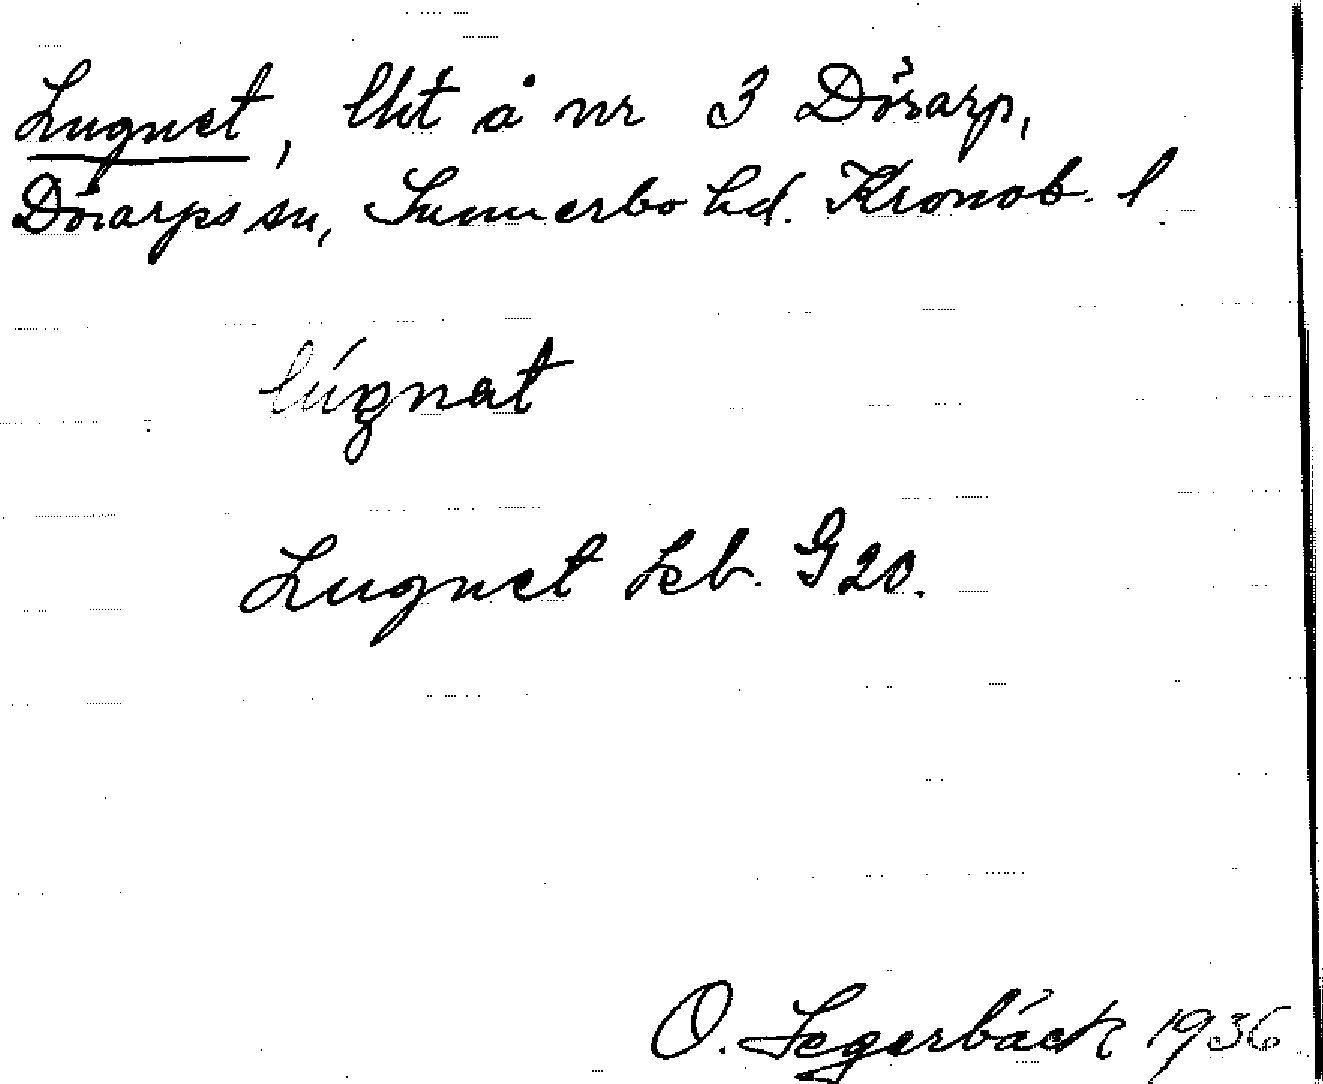 Lugnet, lht å nr 3 Dörarp,
Dörarps sn, Sunnerbo hd. Kronob. l.
lúgnat
Lugnet Jeb. G 20.
O. Segerbäck 1936